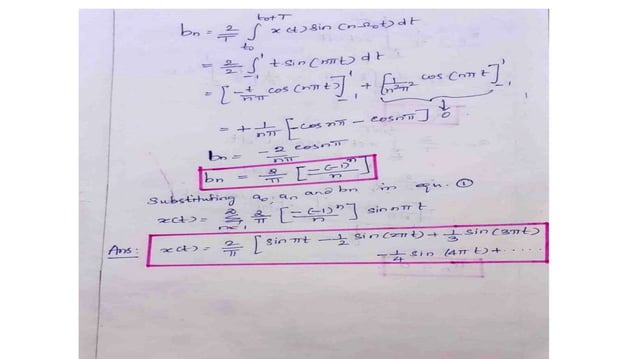 bn = 2/T ∫_{t0}^{t0+T} x(t) sin(nΩ0t) dt
= 2/2 ∫_{-1}^{1} t sin(nπt) dt
= [-t/nπ cos(nπt)]_{-1}^{1} + [1/n²π² cos(nπt)]_{-1}^{1} ↓ 0
= +1/nπ [-cosnπ - cosnπ]
bn = -2/nπ cosnπ
bn = 2/π [-(-1)^n/n]
Substituting a0, an and bn in equ. ①
x(t) = Σ_{n=1}^{∞} 2/π [-(-1)^n/n] sinnπt
Ans: x(t) = 2/π [sinπt - 1/2 sin(2πt) + 1/3 sin(3πt)
- 1/4 sin(4πt) + .....